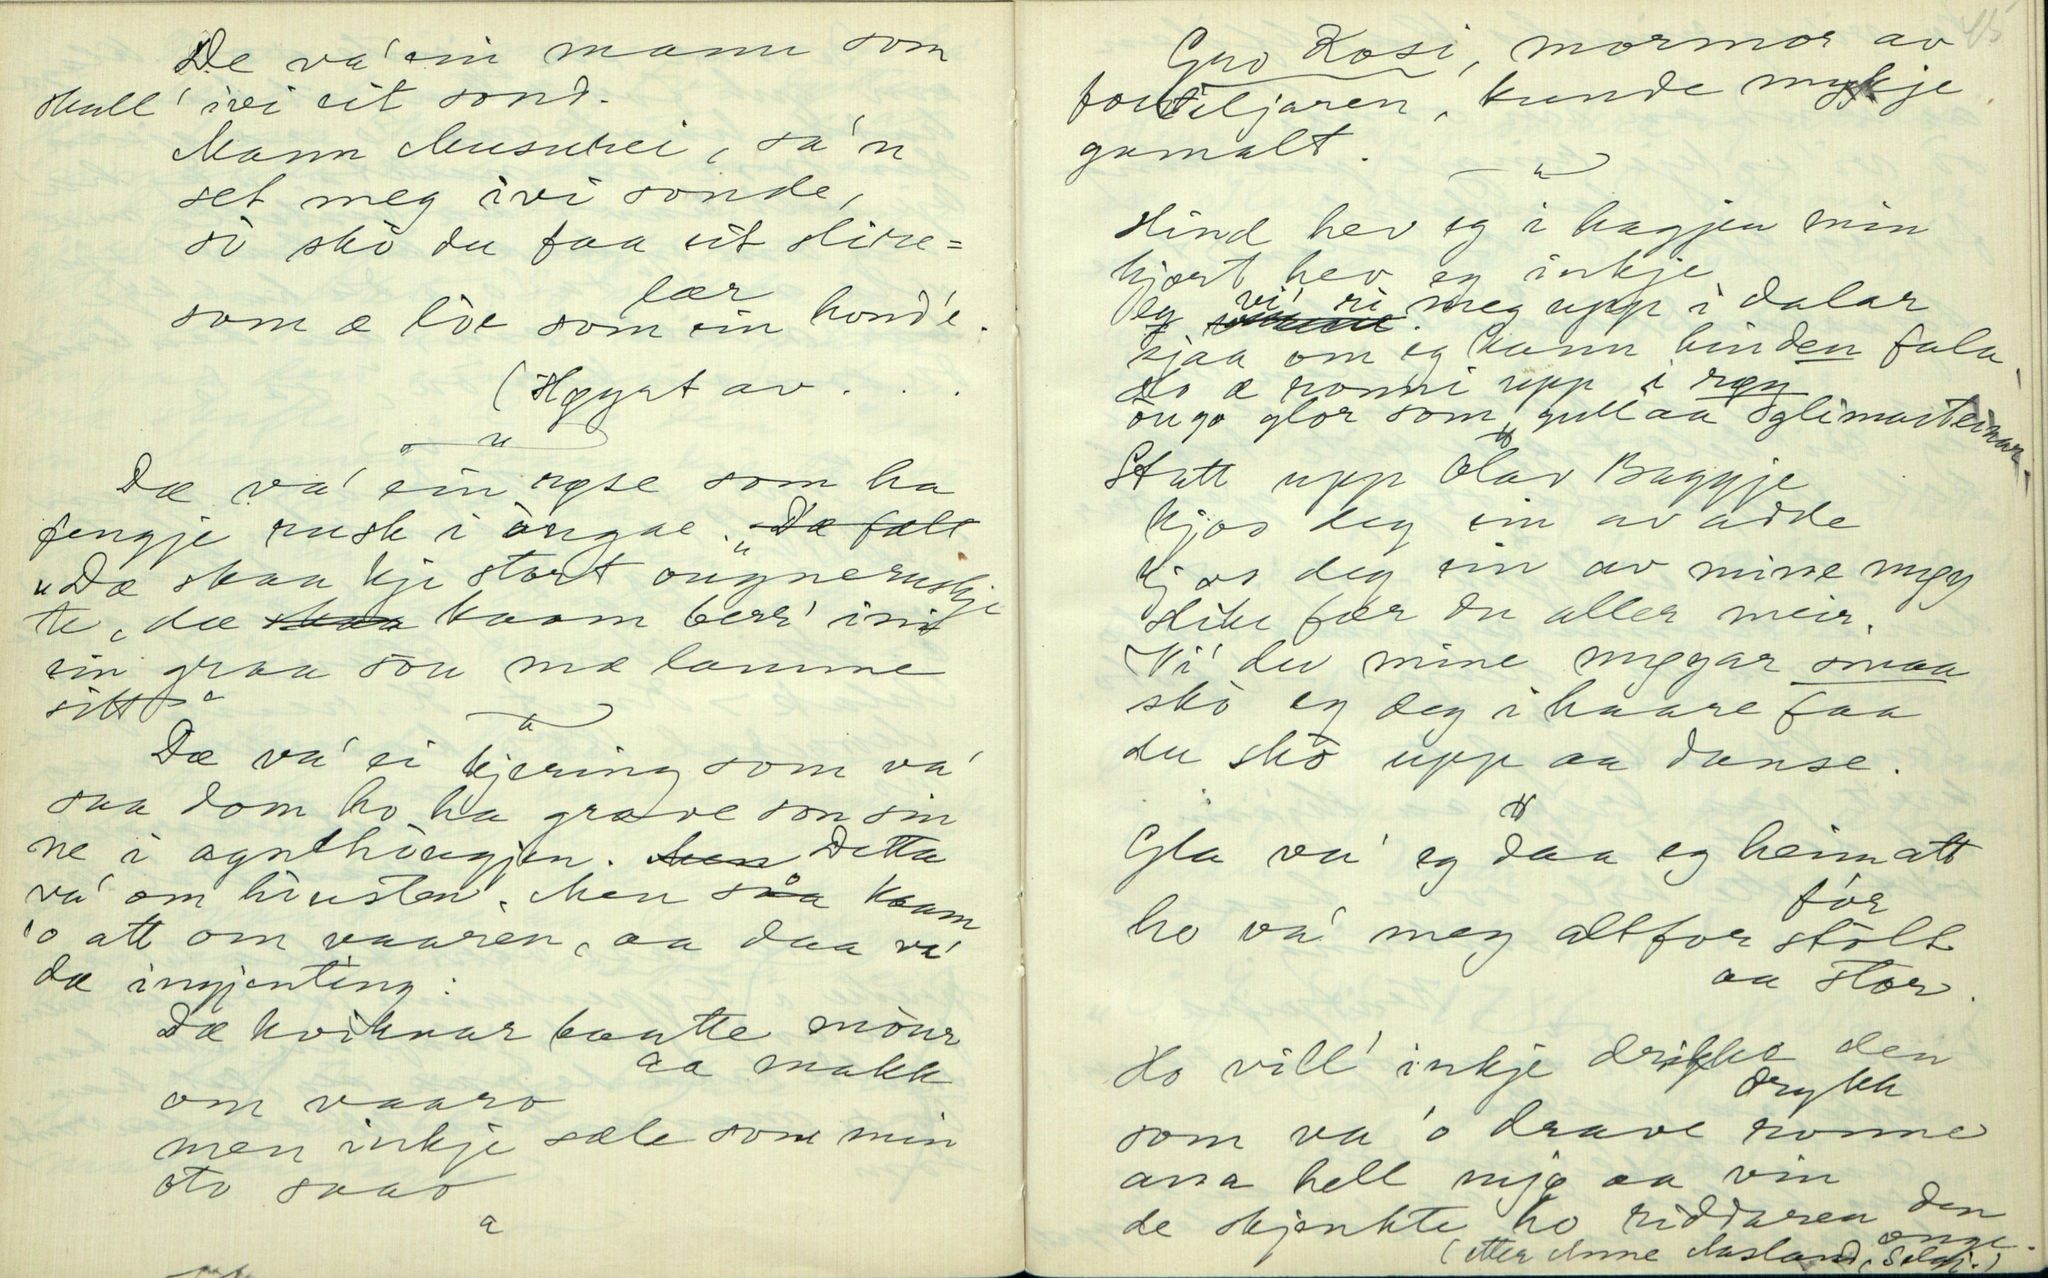 De va' ein mann som
skull' ivi eit sond.
Mann Musuhei, sa'n
set meg ivi sonde,
so sko du faa eit slire=
lær
som æ loe som ein hond'e.
(Høyrt av . . .
Dæ va' ein røse som ha
fengje rusk i ougae. "Dæ falt
"Dæ skaa kje stort ougnerusje
te, dæ skaa kaam berr' inn
ein graa sou mæ lamme
sitt"
Dæ va' ei kjering som va'
saa dom ho ha grave son sin
ne i agnehougjen. Men Detta
va' om housten. Men saa kaam
'o att om vaaren, aa daa va'
dæ ingjenting:
Dæ kviknar baatte mour
aa makk
om vaaro
men inkje sæle som min
oto saas
45
Gro Kosi, mormor av
forteljaren, kunde mykje
gamalt.
Hind hev eg i hagjen min
hjort hev eg inkje
eg vi' ri meg upp i dalar
sjaa om eg kann hinden fala.
Ho æ ronni upp i røy
ougo glor som gull aa glimarsteinar.
Statt upp Olav Bøggje
kjos deg ein av adde
kjos deg ein av mine møy
slike fær du aller meir.
Vi' du mine møyar smaa
sko eg deg i haare faa
du sko upp aa danse.
Gla va' eg daa eg heim att
för
ho va' meg altfor stolt
aa stor.
Ho vill' inkje drikke den
drykk
som va 'o drave ronne
ana hell mjø aa vin
de skjenkte ho riddaren den
onge.
(etter Anne Aasland, Selj.)